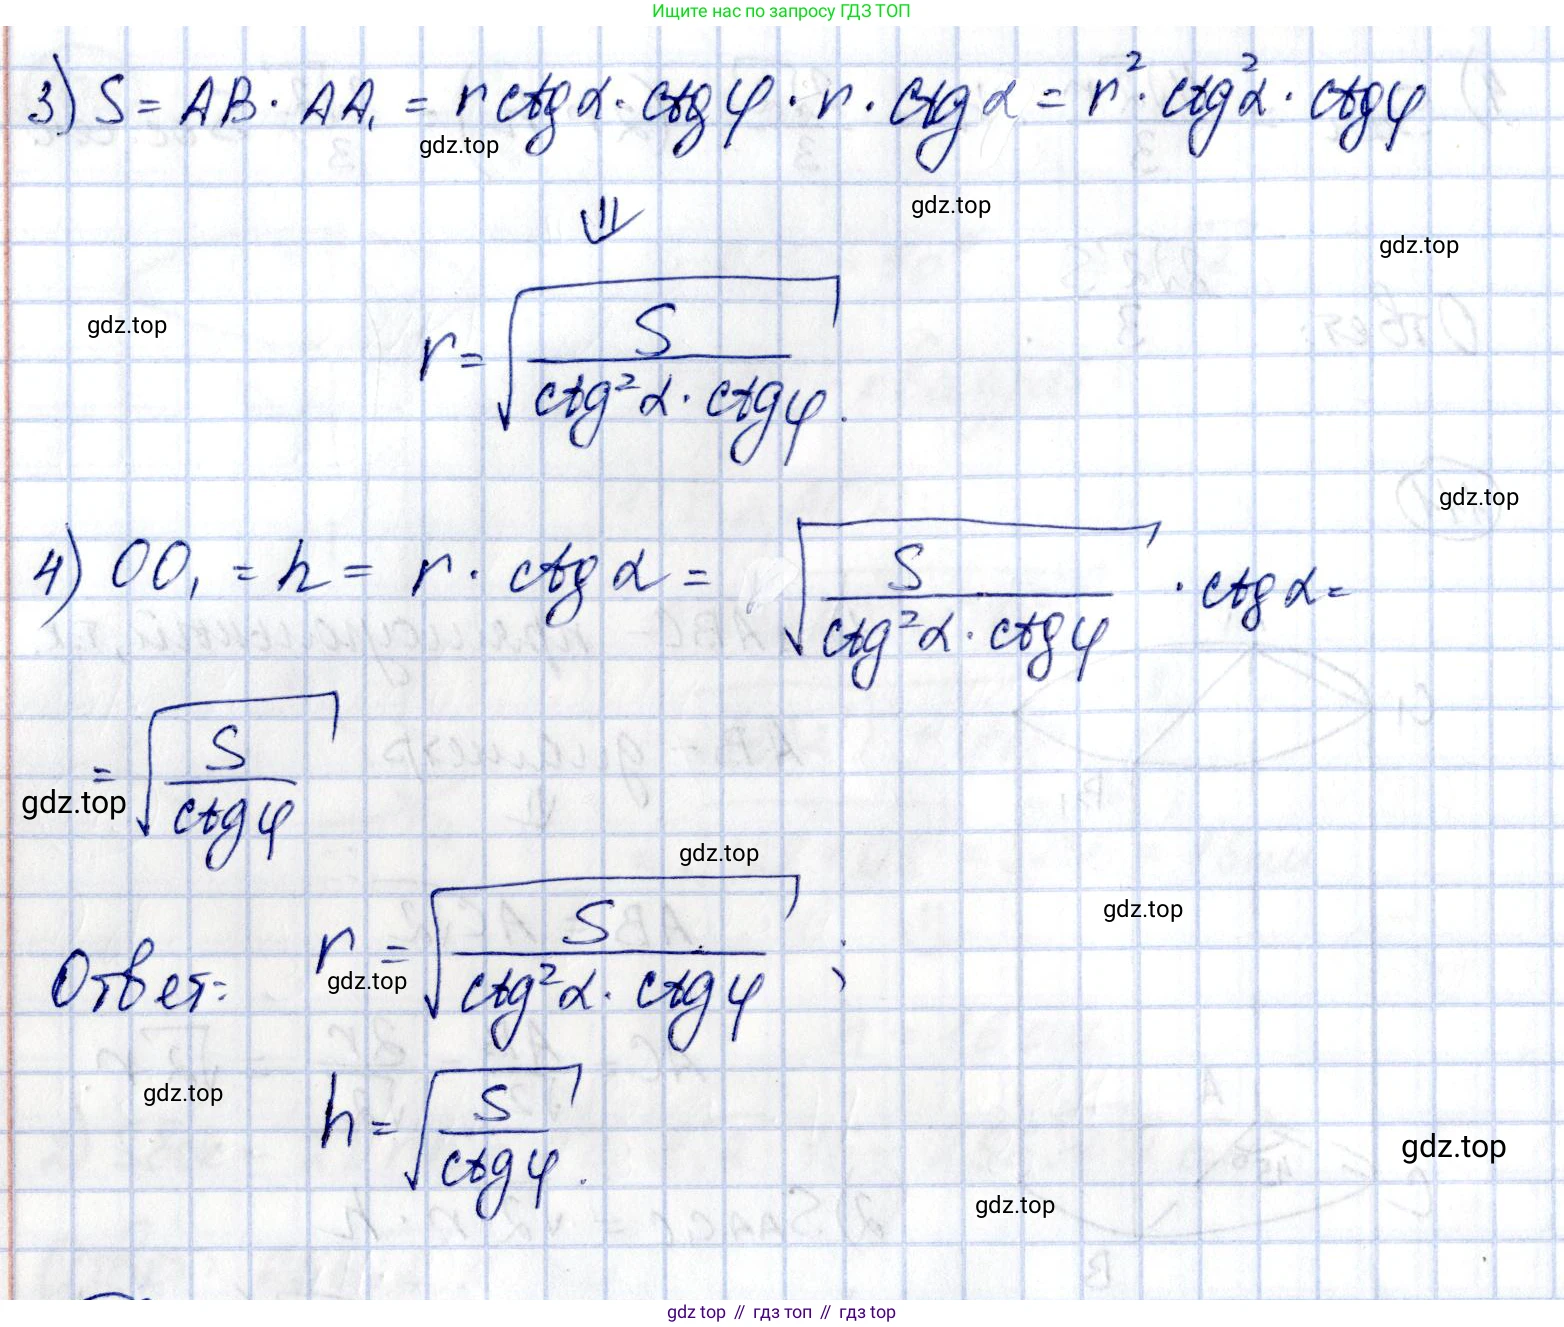 Ищите нас по запросу ГДЗ ТОП
3) S = AB · AA₁ = r ctg α · ctg φ · r · ctg α = r² · ctg²α · ctg φ
gdz.top
gdz.top
⇓
gdz.top
gdz.top
r = √(S / (ctg²α · ctg φ)).
gdz.top
4) OO₁ = h = r · ctg α = √(S / (ctg²α · ctg φ)) · ctg α =
= √(S / ctg φ)
gdz.top
gdz.top
gdz.top
Ответ: r = √(S / (ctg²α · ctg φ)) ;
gdz.top
gdz.top
h = √(S / ctg φ).
gdz.top
gdz.top
gdz top // гдз топ // гdz top